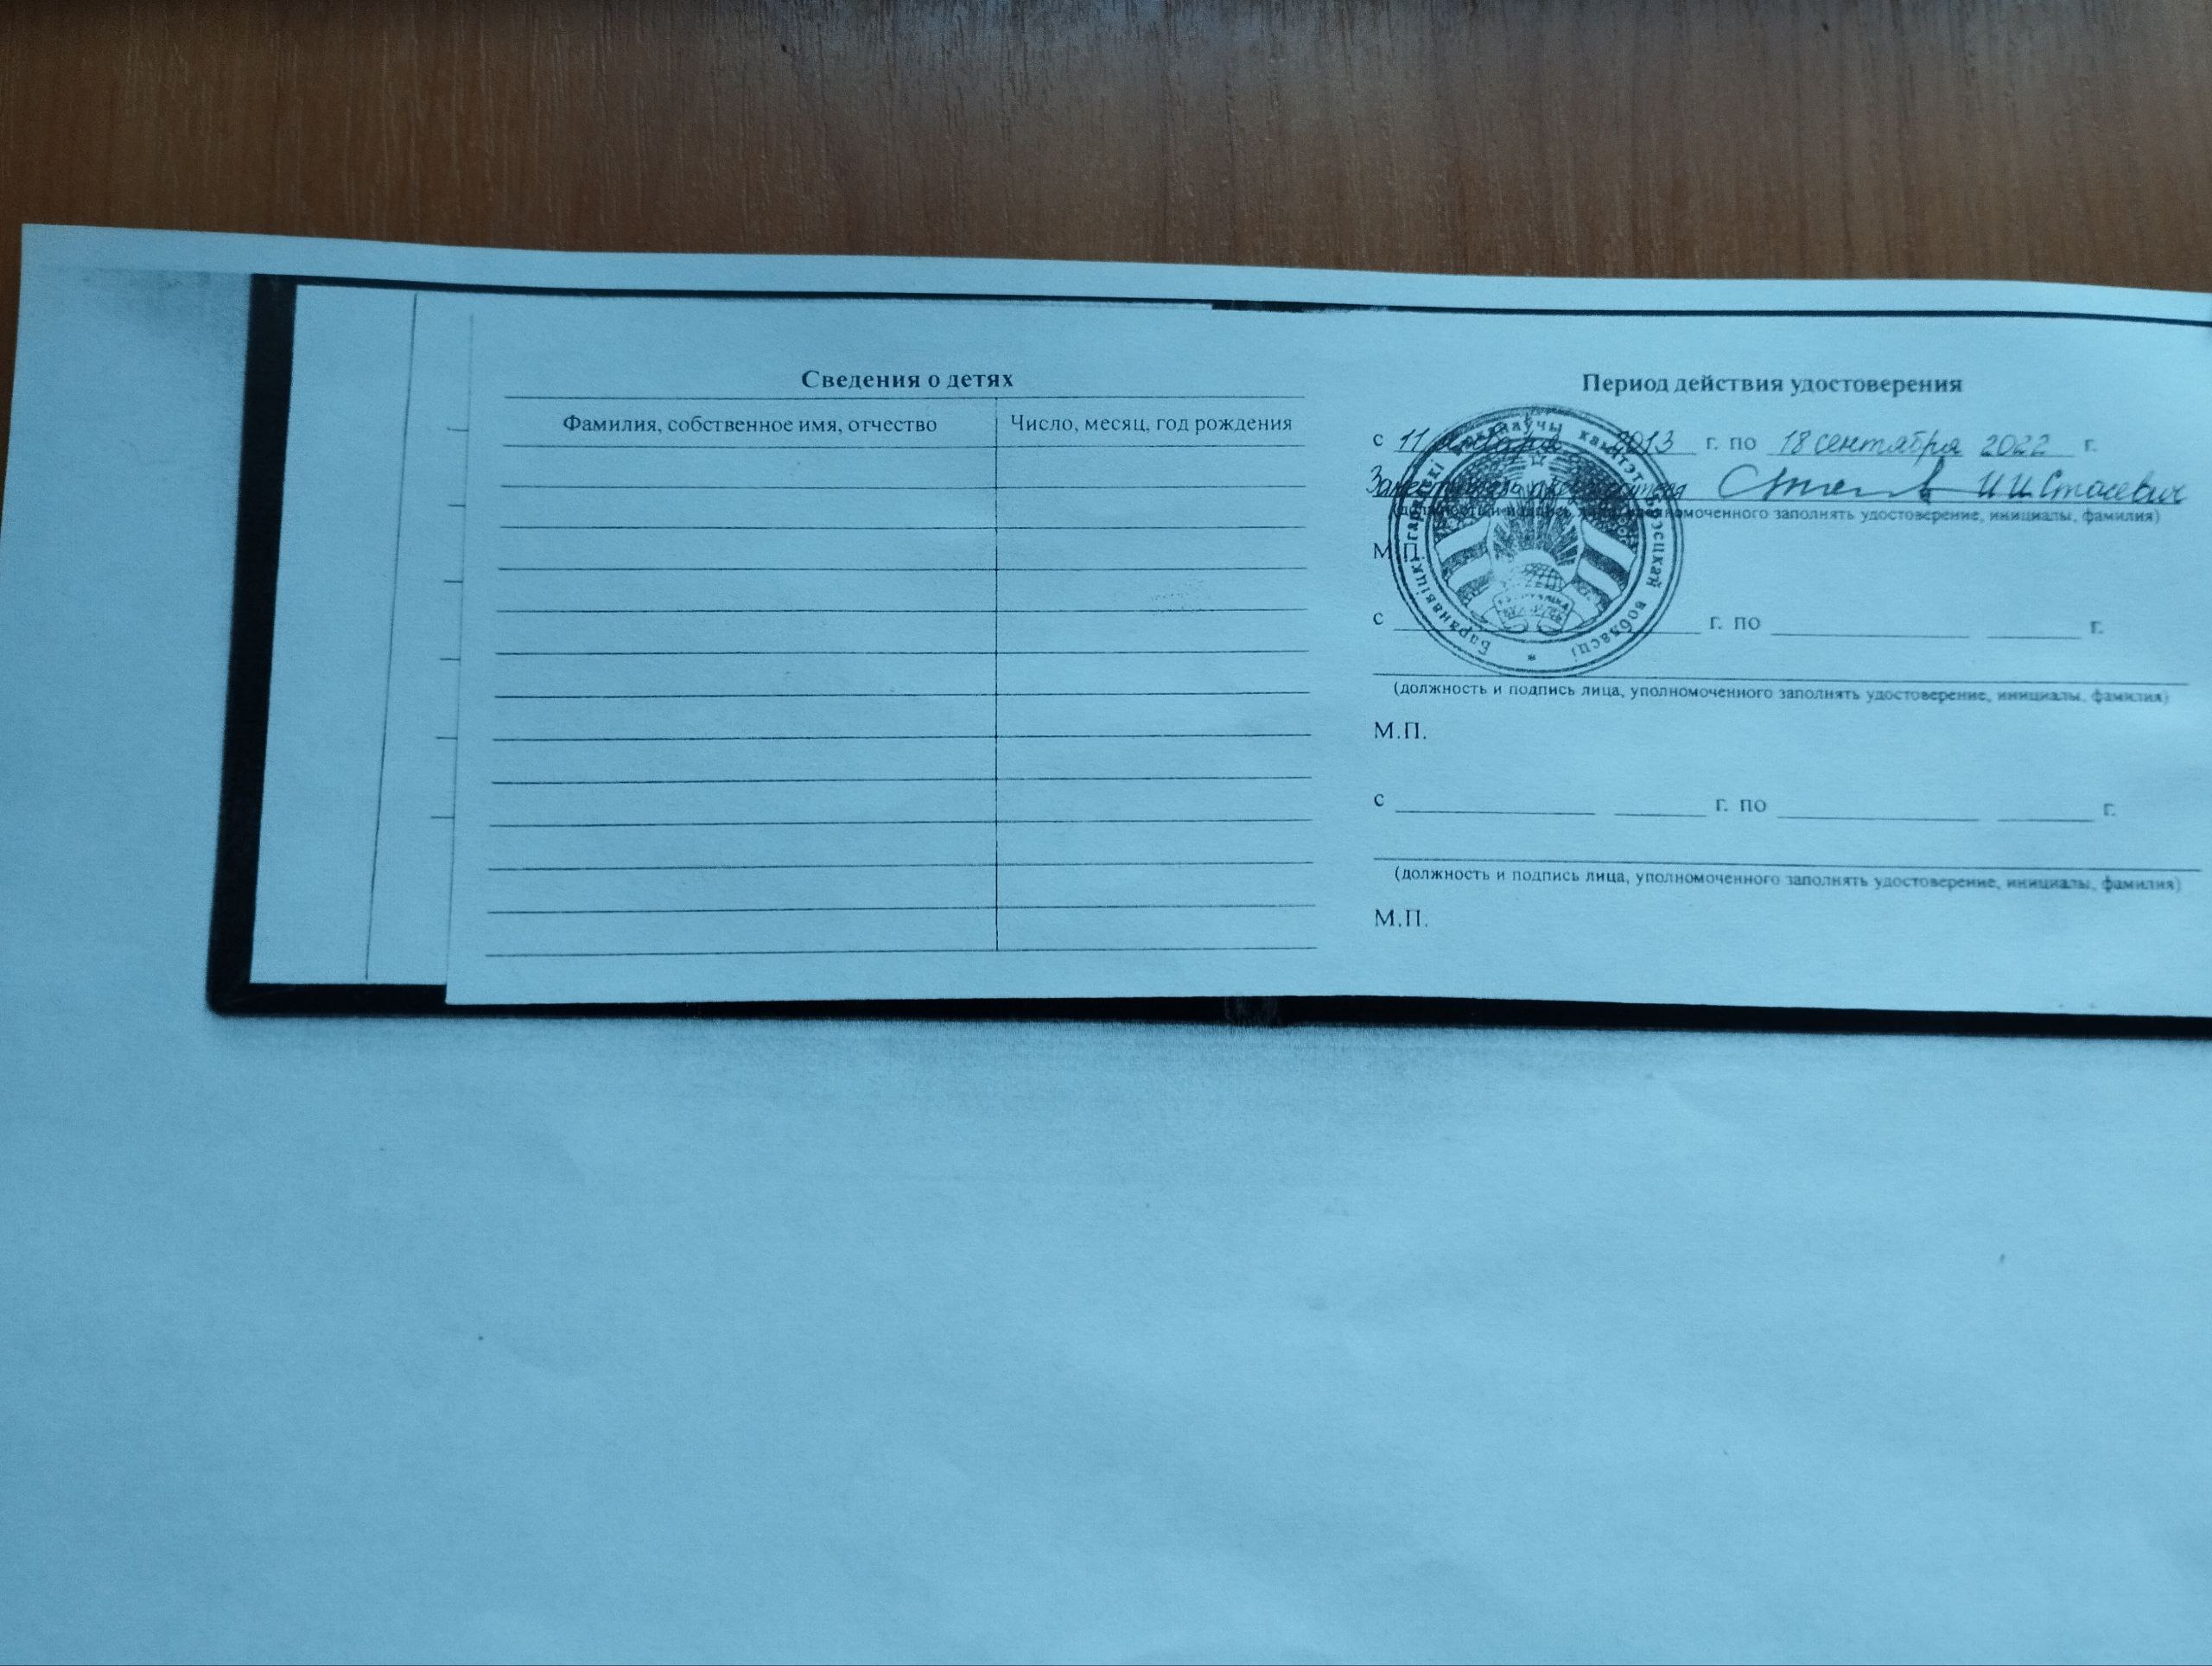 Сведения о детях
Фамилия, собственное имя, отчество
Число, месяц, год рождения
Период действия удостоверения
с 11 2013 г. по 18 сентября 2022 г.
Заместитель И.И. Стасевич
(должность и подпись лица, уполномоченного заполнять удостоверение, инициалы, фамилия)
М.П.
Баранавіцкі гарадскі выканаўчы камітэт Брэсцкай вобласці
с г. по г.
(должность и подпись лица, уполномоченного заполнять удостоверение, инициалы, фамилия)
М.П.
с г. по г.
(должность и подпись лица, уполномоченного заполнять удостоверение, инициалы, фамилия)
М.П.